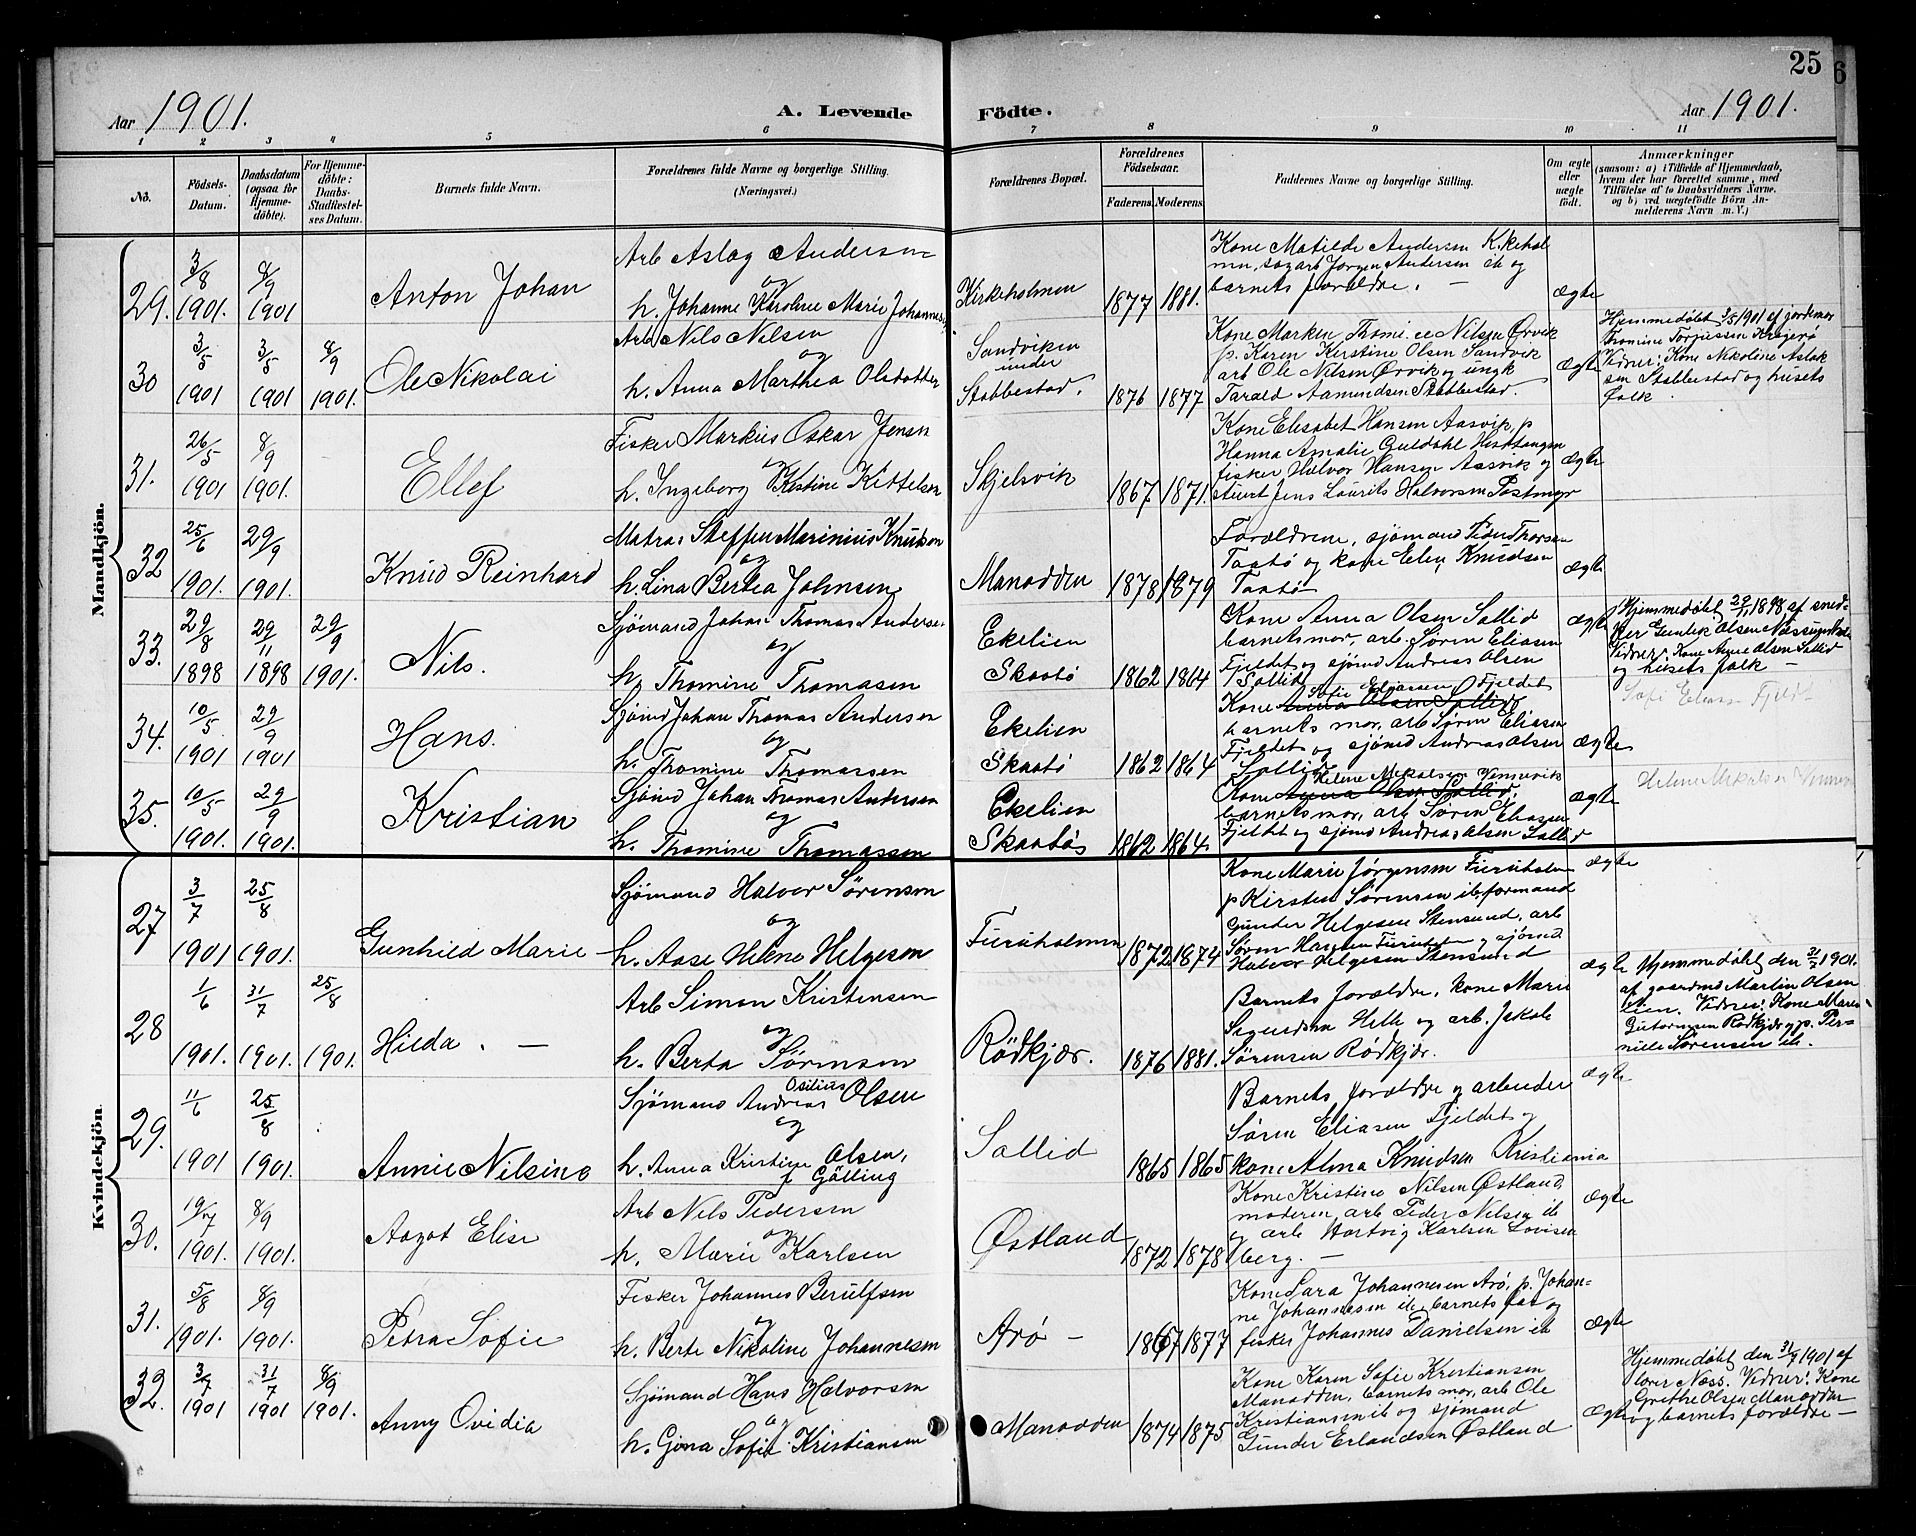 25
6
Aar 1901.
A. Levende
Födte.
Aar 1901.
1 2 3 4 5 6 7 8 9 10 11
No.
Födsels-Datum.
Daabsdatum (ogsaa for Hjemmedöbte).
For Hjemmedöbte: Daabs-Stadfæstelses Datum.
Barnets fulde Navn.
Forældrenes fulde Navne og borgerlige Stilling. (Næringsvei.)
Forældrenes Bopæl.
Forældrenes Födselsaar.
Faderens. Moderens.
Faddernes Navne og borgerlige Stilling.
Om ægte eller uægte födt.
Anmærkninger
(saasom: a) i Tilfælde af Hjemmedaab,
hvem der har forrettet samme, med
Tilföielse af to Daabsvidners Navne.
og b) ved uægtefödte Börn An-
melderens Navn m. V.)
Mandkjön.
29. 3/8 1901. 8/9 1901
Anton Johan
Arb Aslag Andersen
og
h. Johanne Karoline Marie Johannes
Kirkeholmen
1877 1881.
Kone Matilde Andersen Kirkehol
men, og arb Jørgen Andersen ib og
barnets forældre. —
ægte
30 3/5 1901 3/5 1901 8/9 1901.
Ole Nikolai
Arb Nils Nilsen
og
h. Anna Marthea Olsdatter
Sandviken
under
Stabbestad.
1876 1877
Kone Marken Thomine Nilsen Ørvik
p. Karen Kerstine Olsen Sandvik
arb Ole Nilsen Ørvik og ungk
Tarald Aamundsen Stabbestad.
ægte
Hjemmedøbt 3/5 1901 af jordemor
Thomine Torjusen Kragerø
Vidner: Kone Nikoline Aslak
sen Stabbestad og husets
folk.
31. 26/5 1901 8/9 1901.
Ellef
Fisker Markus Oskar Jensen
og
h. Ingeborg Kirstine Kittelsen
Skjelsvik
1867 1871.
Kone Elisabet Hansen Aasvik, p
Hanna Amalie Guldahl Hestetangen
fisker Halvor Hansen Aasvik og
stuert Jens Laurits Halvorsen Postmyr
ægte
32 25/6 1901. 29/9 1901.
Knud Reinhard
Matros Steffen Marinius Knudsen
og
h. Lina Bertea Johnsen
Manodden
1878 1879
Forældrene, sjømand Peder Thorsen
Taatø og kone Elen Knudsen
Taatø
ægte
33. 29/8 1898 29/11 1898 29/9 1901.
Nils.
Sjømand Johan Thomas Andersen
og
h. Thomine Thomasen
Ekelien
Skaatø
1862 1864
Kone Anna Olsen Sallid
barnets mor, arb. Søren Eliasen
Fjeldet og sjømd Andreas Olsen
Sallid
ægte
Hjemmedøbt 29/11 1898 af sned-
ker Gunlek Olsen
Vidner: Kone Anne Olsen Sallid
og husets folk —
34. 10/5 1901 29/9 1901
Hans.
Sjømd Johan Thomas Andersen
og
h. Thomine Thomassen
Ekelien
Skaatø
1862 1864
Sofie Eliassen Fjeldet
Kone Anna Olsen Sallid
barnets mor, arb Søren Eliassen
Fjeldet og sjømd Andreas Olsen
Sallid
ægte
Sofi Eliasen Fjeldt
35. 10/5 1901. 29/9 1901.
Kristian
Sjømd Johan Thomas Andersen
og
h. Thomine Thomassen
Ekelien
Skaatø
1862 1864
Helene Mikalsen Vinnevik
Kone Anna Olsen Sallid,
barnets mor, arb Søren Eliasen
Fjeldet og sjømd Andreas Olsen Sallid
ægte
Helene Mikalsen
Kvindekjön.
27 3/7 1901 25/8 1901.
Gunhild Marie —
Sjømand Halvor Sørensen
og
h. Aase Helene Helgesen
Furuholmen
1872 1874
Kone Marie Jørgensen Furuholm
p Kirsten Sørensen ib, formand
Gunder Helgesen Stensund, arb
Søren Hansen Furuholm og sjømd
Halvor Helgesen Stensund
ægte
28 1/6 1901. 31/7 1901. 25/8 1901.
Hilda. —
Arb Simon Kristensen
og
h. Berta Sørensen
Rödkjær.
1876 1881.
Barnets forældre, kone Marie
Sigurdsen Helle og arb. Jakob
Sørensen Rødkjær.
ægte
Hjemmedøbt den 31/7 1901.
af gaardmd Martin Olsen
Lien. Vidner: Kone Maren
Gutormsen Rødkjær og p. Per-
nille Sørensen ib.
29. 11/6 1901 25/8 1901.
Annie Nilsine
Sjømand Andreas Osilius Olsen
og
h. Anna Kristine Olsen,
f Götting
Sallid
1865 1865
Barnets forældre og arbeider
Søren Eliasen Fjeldet og
kone Alma Knudsen Kristiania
ægte
30. 19/7 1901. 8/9 1901.
Aagot Elise
Arb Nils Pedersen
og
h. Marie Karlsen
Østland
1872 1878
Kone Kristine Nilsen Østland,
moderen, arb Peder Nilsen ib
og arb Hartvig Karlsen Lovisen
berg. —
ægte
31. 5/8 1901. 8/9 1901.
Petra Sofie
Fisker Johannes Berulfsen
og
h. Berte Nikoline Johannesen
Arø —
1867 1877
Kone Sara Johannesen Arø, p. Johan-
ne Johannesen ib, barnets far og
fisker Johannes Danielsen ib
ægte
32. 3/7 1901 31/7 1901 8/9 1901.
Anny Ovidia
Sjømand Hans Halvorsen
og
h. Gina Sofie Kristiansen
Manodden
1874 1875
Kone Karen Sofie Kristiansen
Manodden, barnets mor, arb Ole
Kristiansen ib og sjømand
Gunder Erlandsen Østland
ægte
Hjemmedøbt den 31/7 1901 af
lærer Næss. Vidner: Kone
Grethe Olsen Manodden
og barnets forældre —